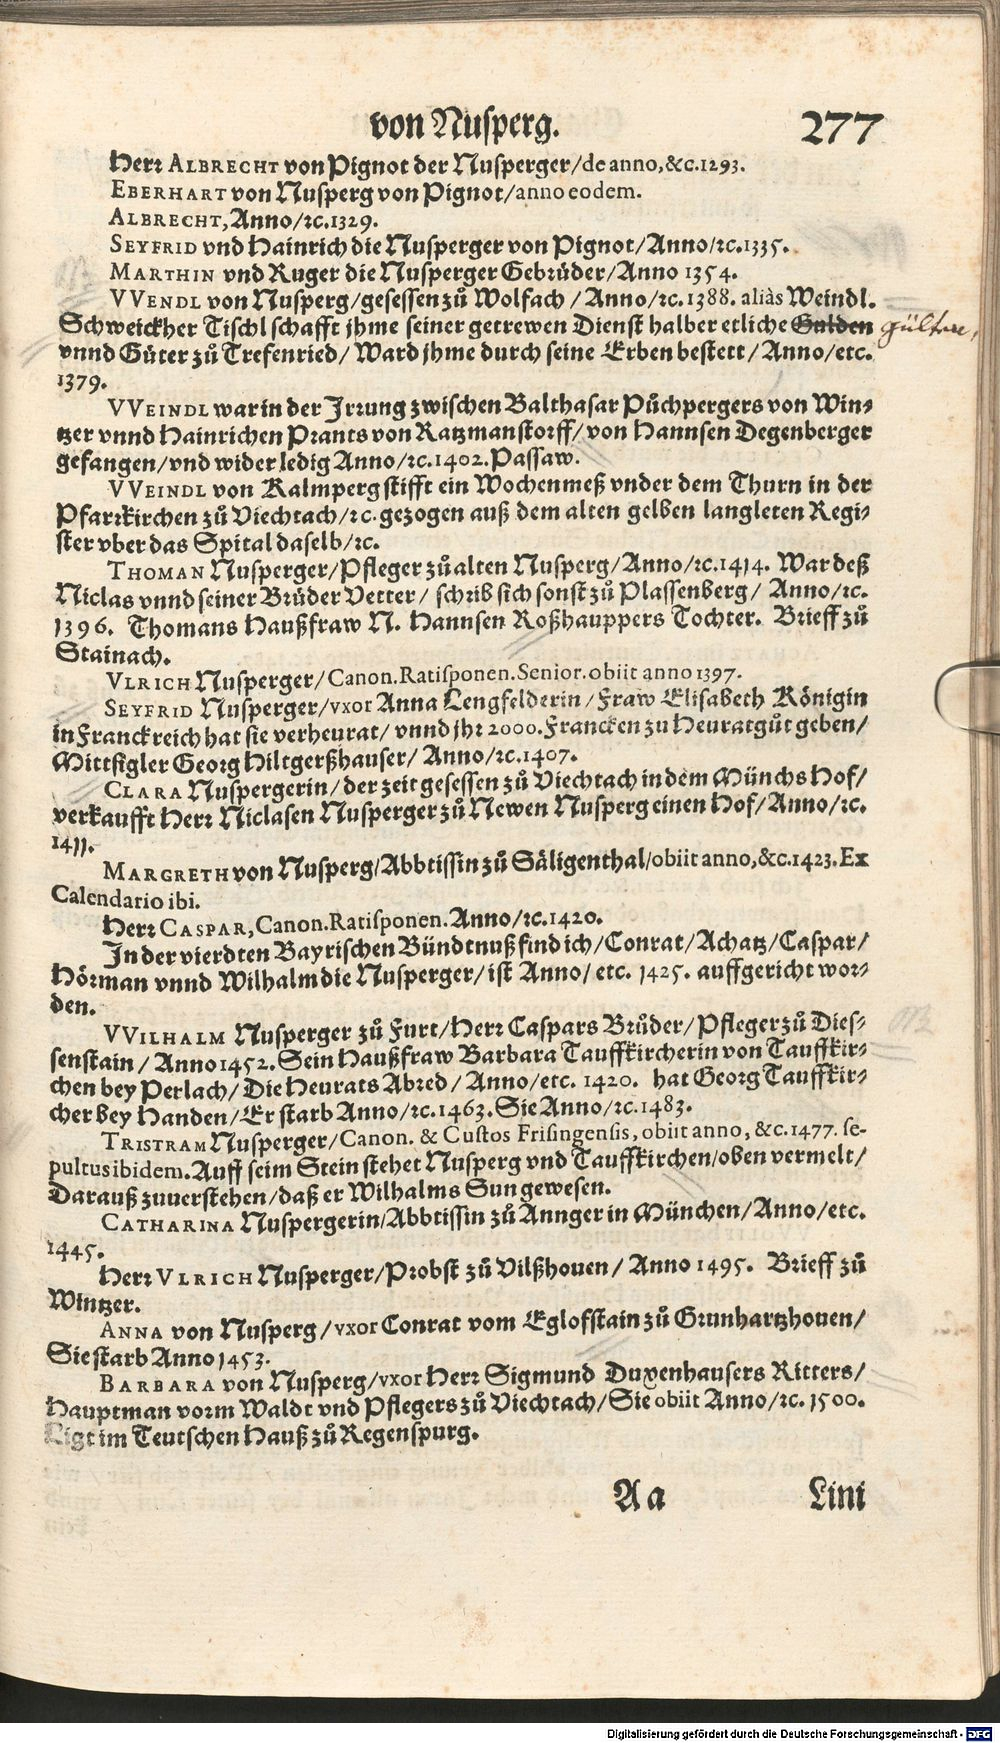 von Nusperg. 277
Herr ALBRECHT von Pignot der Nusperger/de anno,&c.1293.
EBERHART von Nusperg von Pignot/anno eodem.
ALBRECHT, Anno/ꝛc.1329.
SEYFRID vnd Hainrich die Nusperger von Pignot/Anno/ꝛc.1335.
MARTHIN vnd Ruger die Nusperger Gebrüder/Anno 1354.
VVENDL von Nusperg/gesessen zů Wolfach/Anno/ꝛc.1388. aliàs Weindl.
Schweickher Tischl schafft jhme seiner getrewen Dienst halber etliche Gulden gülten,
vnnd Güter zů Trefenried/Ward jhme durch seine Erben bestett/Anno/etc.
1379.
VVEINDL war in der Irrung zwischen Balthasar Půchpergers von Win⸗
tzer vnnd Hainrichen Prants von Ratzmanstorff/von Hannsen Degenberger
gefangen/vnd wider ledig Anno/ꝛc.1402. Passaw.
VVEINDL von Kalmperg stifft ein Wochenmeß vnder dem Thurn in der
Pfarrkirchen zů Viechtach/ꝛc. gezogen auß dem alten gelben langleten Regi⸗
ster vber das Spital daselb/ꝛc.
THOMAN Nusperger/Pfleger zů alten Nusperg/Anno/ꝛc.1414. War deß
Niclas vnnd seiner Brüder Vetter/schrib sich sonst zů Plassenberg/Anno/ꝛc.
1396. Thomans Haußfraw N. Hannsen Roßhauppers Tochter. Brieff zů
Stainach.
VLRICH Nusperger/Canon.Ratisponen.Senior.obiit anno 1397.
SEYFRID Nusperger/vxor Anna Lengfelderin/Fraw Elisabeth Königin
in Franckreich hat sie verheurat/vnnd jhr 2000. Francken zu Heuratgůt geben/
Mittsigler Georg Hiltgerßhauser/Anno/ꝛc.1407.
CLARA Nuspergerin/der zeit gesessen zů Viechtach in dem Münchs Hof/
verkaufft Herr Niclasen Nusperger zů Newen Nusperg einen Hof/Anno/ꝛc.
1411.
MARGRETH von Nusperg/Abbtissin zů Säligenthal/obiit anno,&c.1423. Ex
Calendario ibi.
Herr CASPAR, Canon.Ratisponen. Anno/ꝛc.1420.
In der vierdten Bayrischen Bündtnuß find ich/Conrat/Achatz/Caspar/
Hörman vnnd Wilhalm die Nusperger/ist Anno/etc. 1425. auffgericht wor⸗
den.
VVILHALM Nusperger zů Furt/Herr Caspars Brůder/Pfleger zů Dies⸗
senstain/Anno 1452. Sein Haußfraw Barbara Tauffkircherin von Tauffkir⸗
chen bey Perlach/Die Heurats Abred/Anno/etc. 1420. hat Georg Tauffkir⸗
cher bey Handen/Er starb Anno/ꝛc.1463. Sie Anno/ꝛc.1483.
TRISTRAM Nusperger/Canon. & Custos Frisingensis, obiit anno, &c.1477. se-
pultus ibidem. Auff seim Stein stehet Nusperg vnd Tauffkirchen/oben vermelt/
Darauß zuuerstehen/daß er Wilhalms Sun gewesen.
CATHARINA Nuspergerin/Abbtissin zů Annger in München/Anno/etc.
1445.
Herr VLRICH Nusperger/Probst zů Vilßhouen/Anno 1495. Brieff zů
Wintzer.
ANNA von Nusperg/vxor Conrat vom Eglofstain zů Grunhartzhouen/
Sie starb Anno 1453.
BARBARA von Nusperg/vxor Herr Sigmund Duxenhausers Ritters/
Hauptman vorm Waldt vnd Pflegers zů Viechtach/Sie obiit Anno/ꝛc. 1500.
Ligt im Teutschen Hauß zů Regenspurg.
Aa Lini
Digitalisierung gefördert durch die Deutsche Forschungsgemeinschaft - DFG